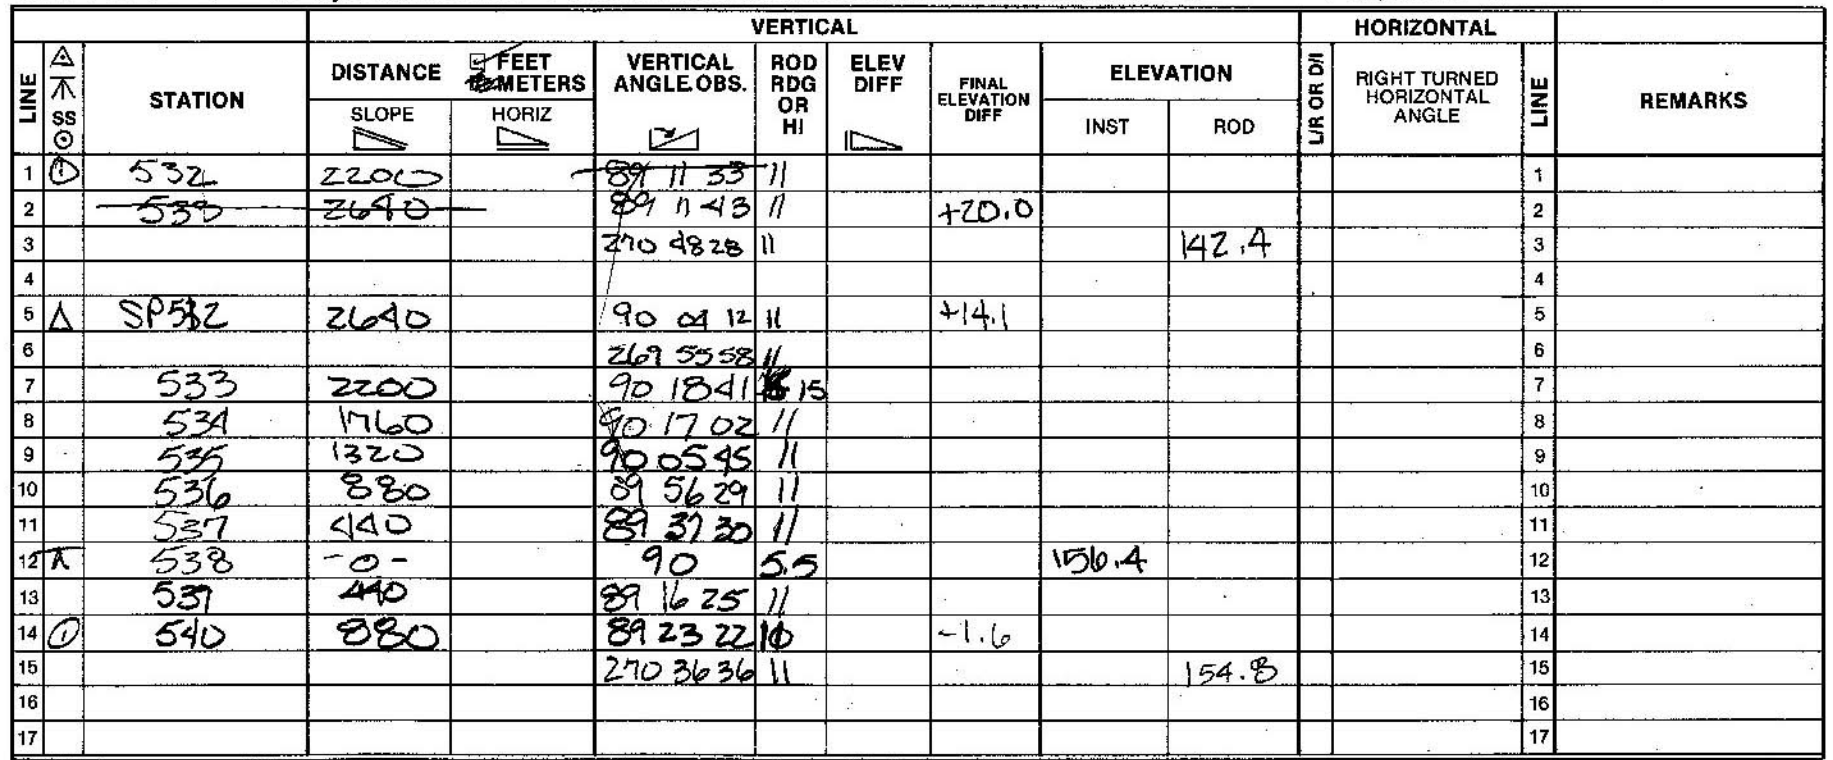 VERTICAL HORIZONTAL
LINE SS STATION DISTANCE FEET METERS VERTICAL ANGLE OBS. ROD RDG OR HI ELEV DIFF FINAL ELEVATION DIFF ELEVATION L/R OR D/I RIGHT TURNED HORIZONTAL ANGLE LINE REMARKS
SLOPE HORIZ INST ROD
1 532 2200 89 11 33 11 1
2 533 2640 89 11 43 11 +20.0 2
3 270 48 28 11 142.4 3
4 4
5 Δ SP532 2640 90 04 12 11 +14.1 5
6 269 55 58 11 6
7 533 2200 90 18 41 15 7
8 534 1760 90 17 02 11 8
9 535 1320 90 05 45 11 9
10 536 880 89 56 29 11 10
11 537 440 89 37 30 11 11
12 538 -0- 90 5.5 156.4 12
13 539 440 89 16 25 11 13
14 540 880 89 23 22 10 -1.6 14
15 270 36 36 11 154.8 15
16 16
17 17